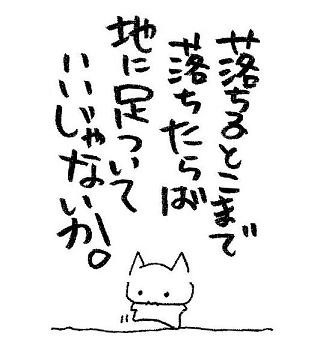 落ちるとこまで
落ちたらば
地に足ついて
いいじゃないか。